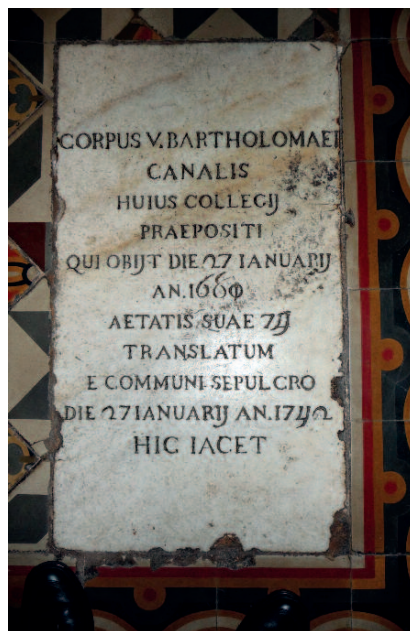 CORPUS V. BARTHOLOMAEI
CANALIS
HUIUS COLLEGIJ
PRAEPOSITI
QUI OBIJT DIE 27 IANUARIJ
AN.
AETATIS SUAE
TRANSLATUM
E COMMUNI SEPULCRO
DIE 27 IANUARIJ AN.
HIC IACET